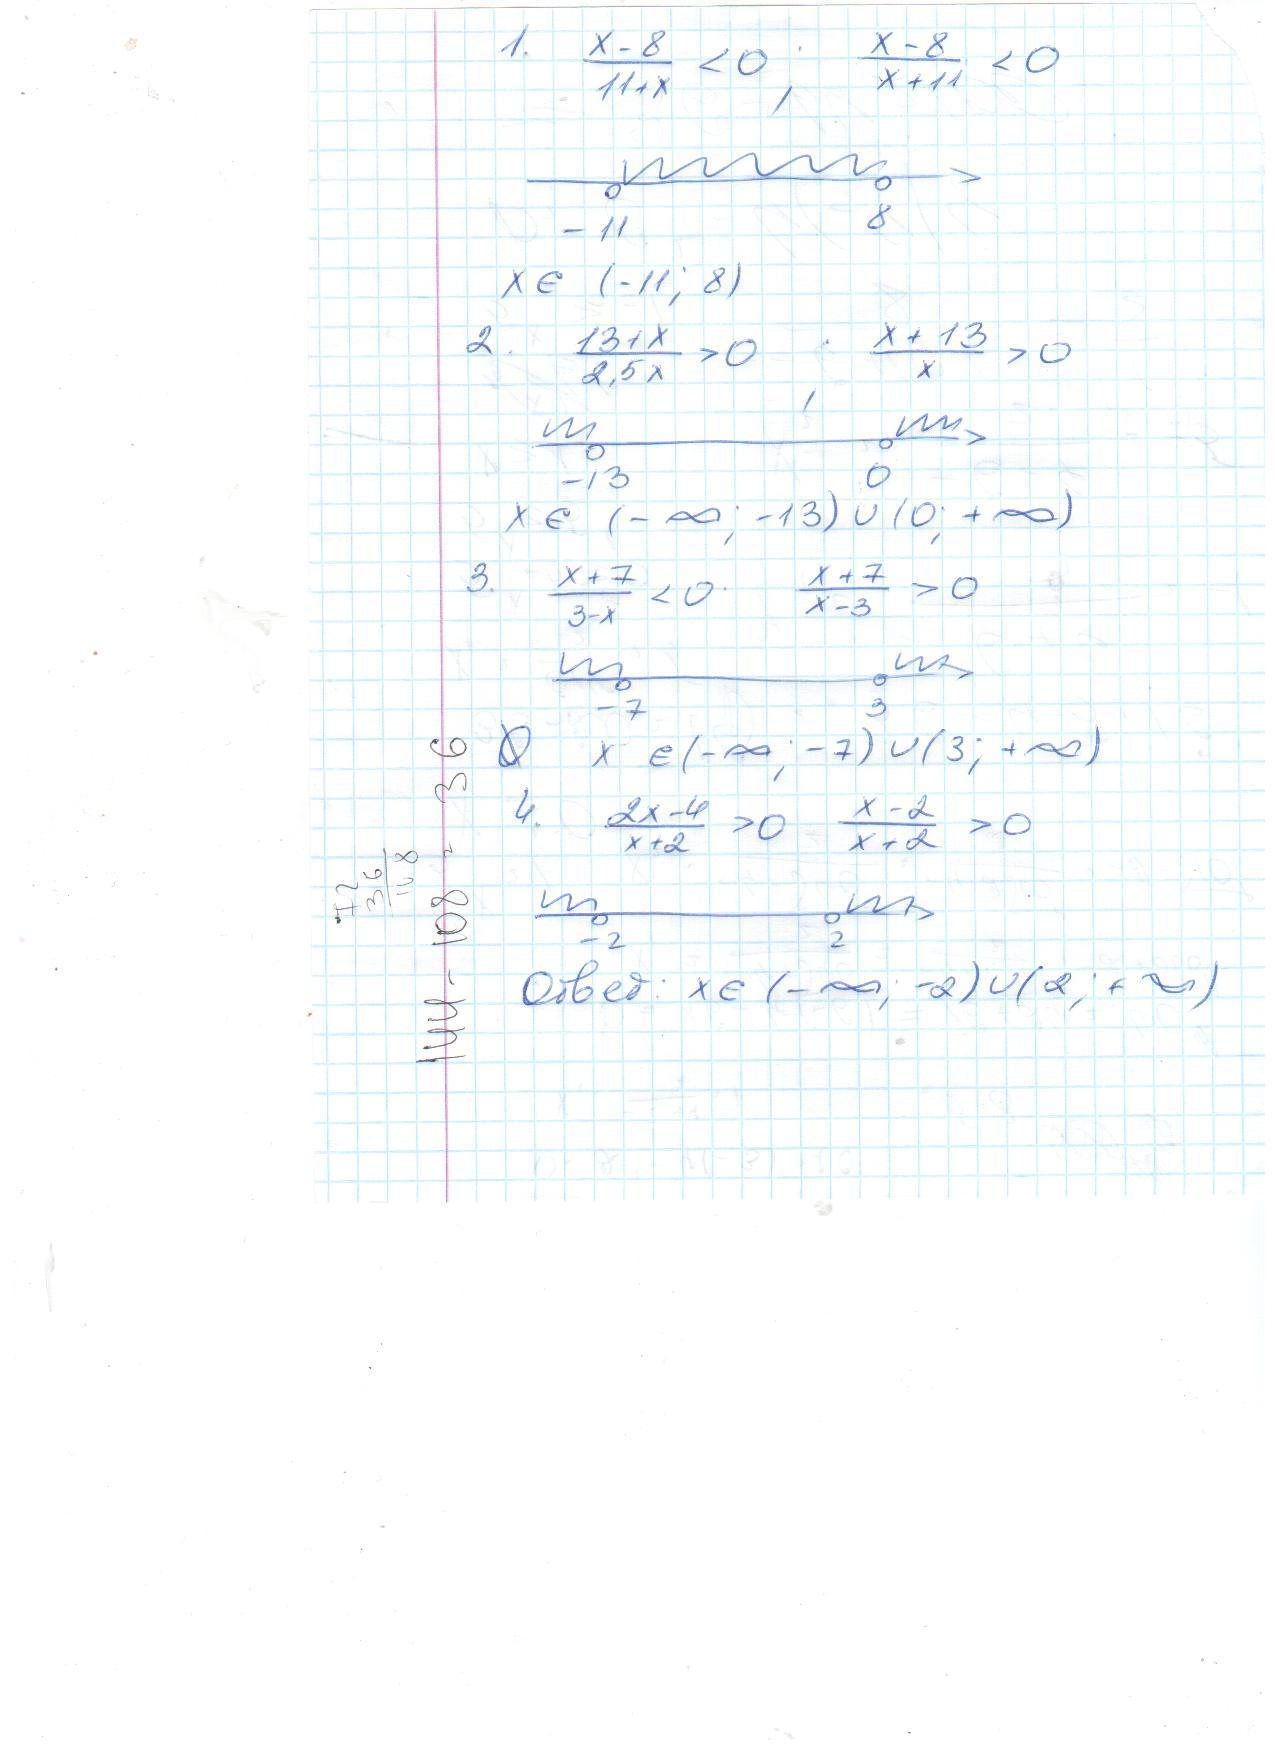 1. (x-8)/(11+x) < 0; (x-8)/(x+11) < 0
-11 8
x ∈ (-11; 8)
2. (13+x)/(2,5x) > 0; (x+13)/x > 0
-13 0
x ∈ (-∞; -13) ∪ (0; +∞)
3. (x+7)/(3-x) < 0 (x+7)/(x-3) > 0
-7 3
x ∈ (-∞; -7) ∪ (3; +∞)
4. (2x-4)/(x+2) > 0 (x-2)/(x+2) > 0
-2 2
Ответ: x ∈ (-∞; -2) ∪ (2; +∞)
72
36
108
144 - 108 = 36